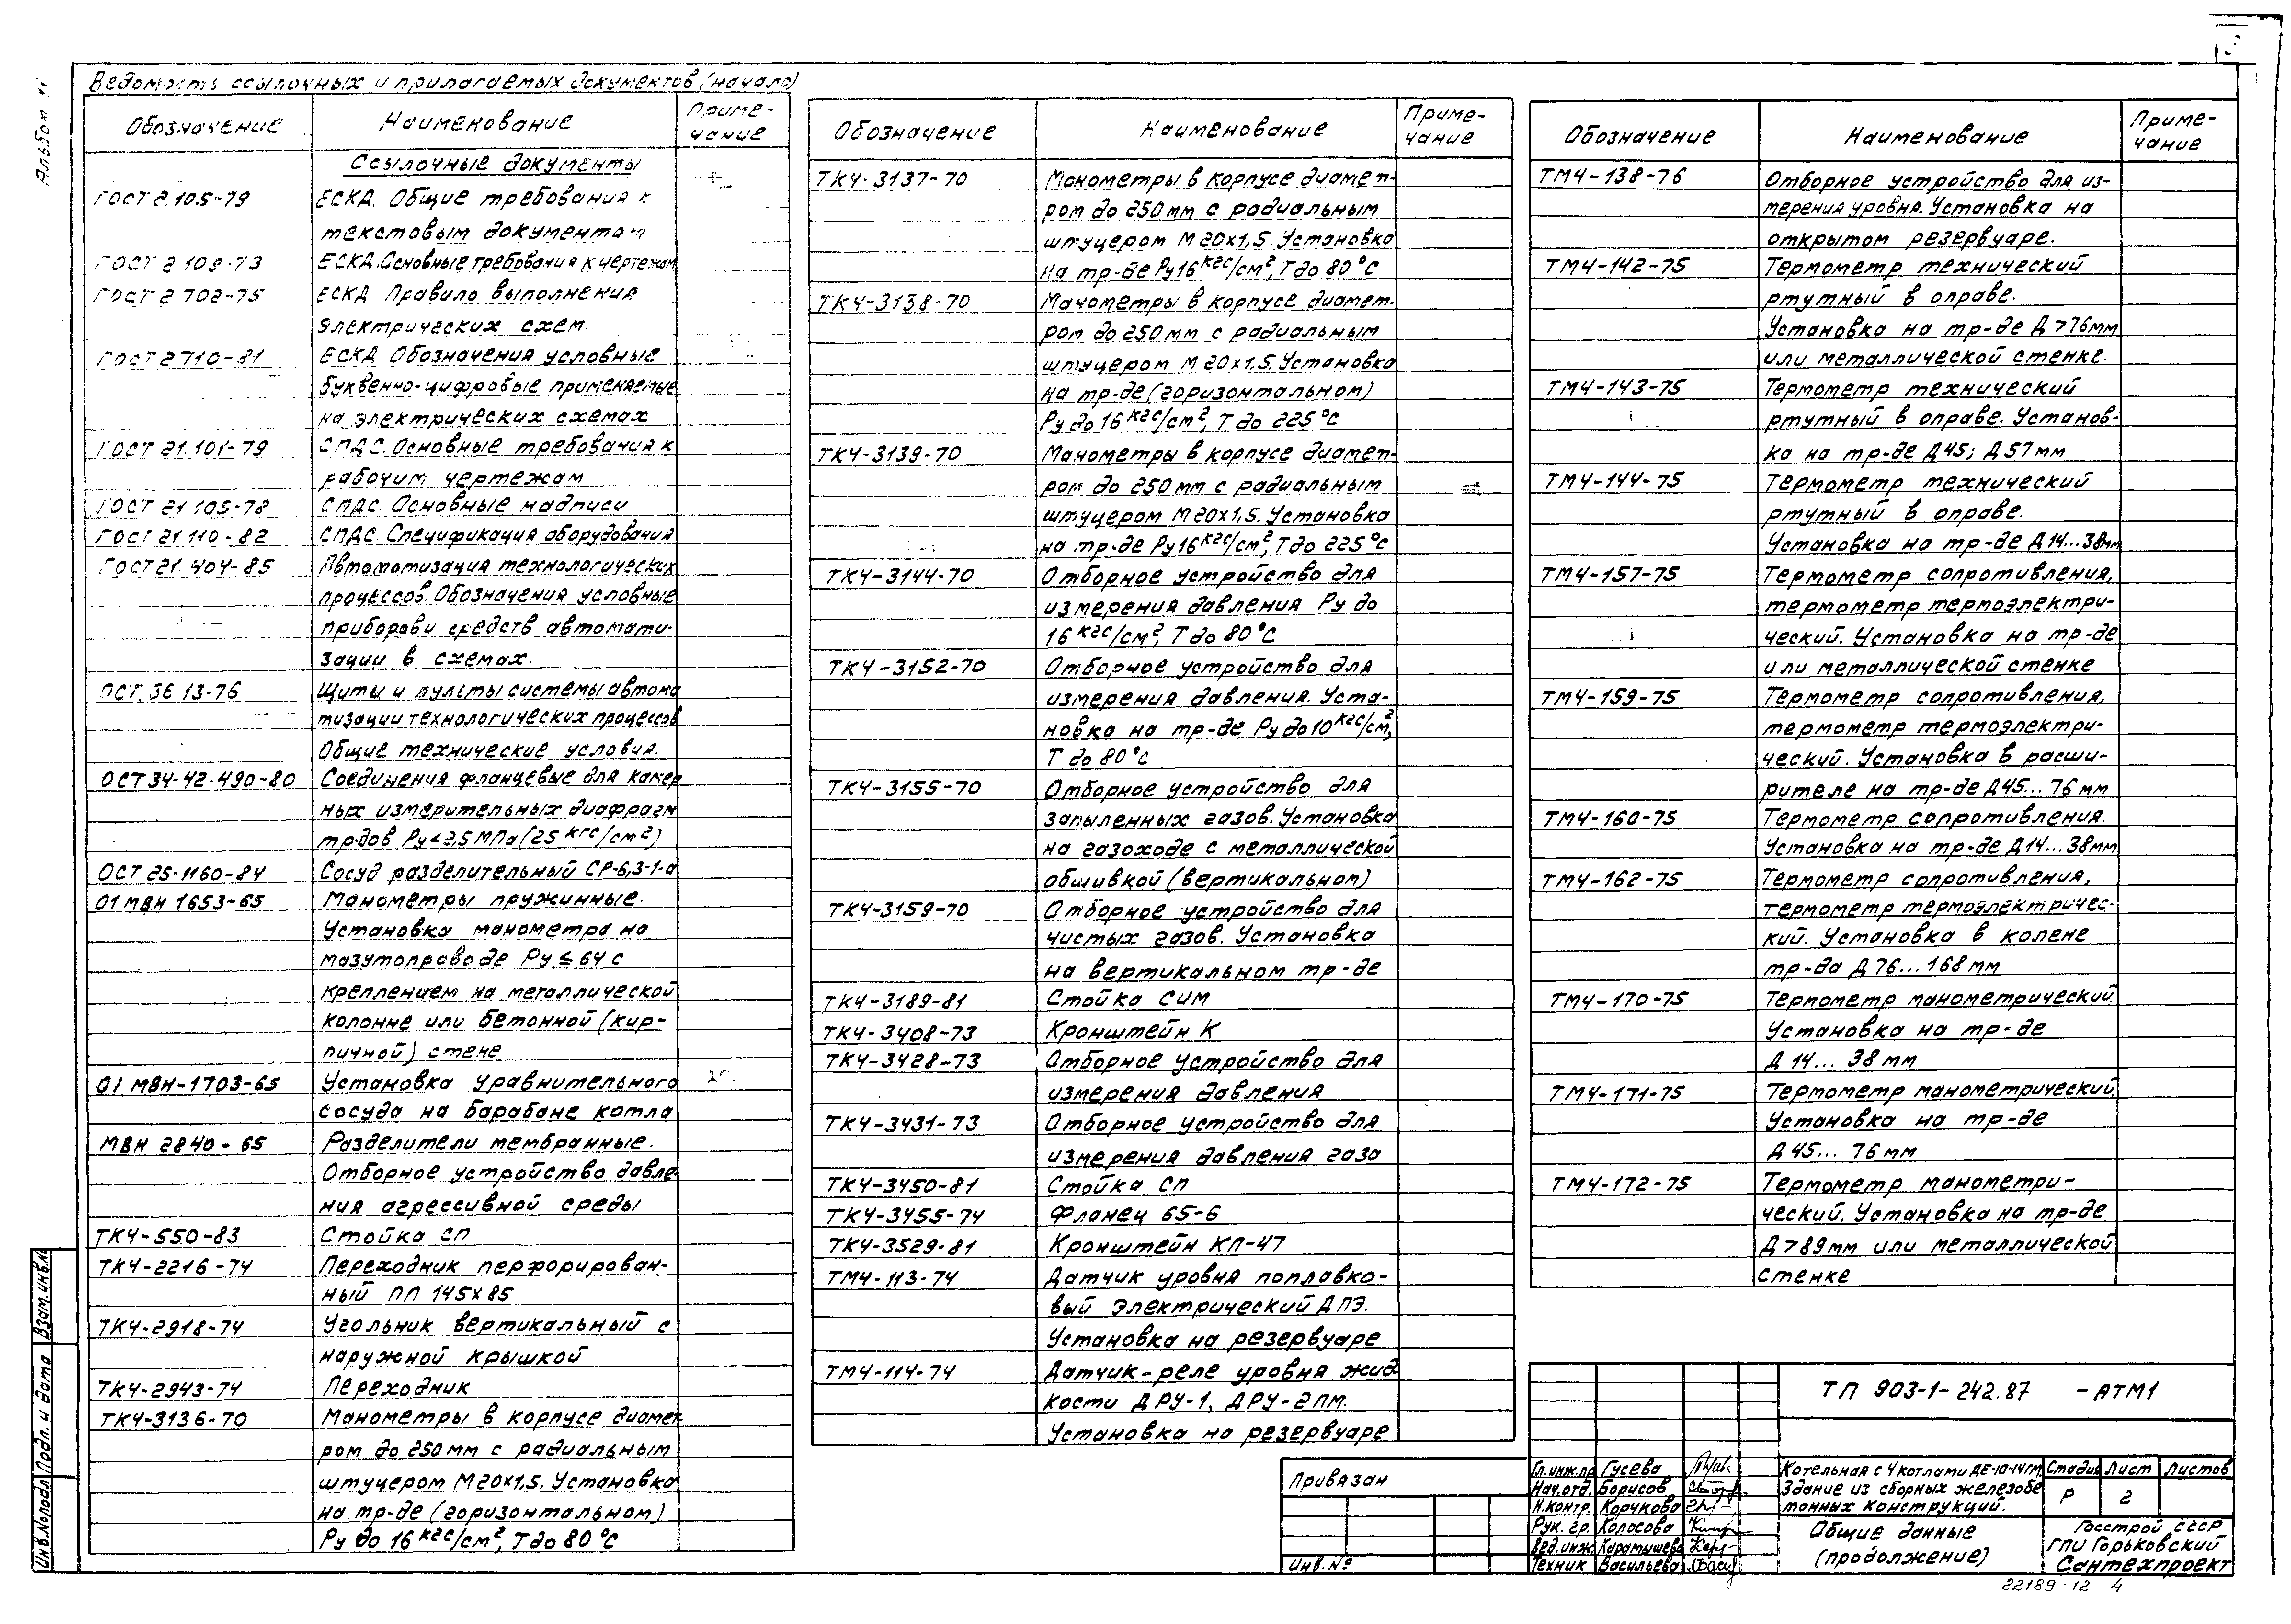 3
Альбом
Ведомость ссылочных и прилагаемых документов (начало)
Обозначение Наименование Приме-
чание
Ссылочные документы
ГОСТ 2.105-79 ЕСКД. Общие требования к
текстовым документам
ГОСТ 2.109-73 ЕСКД. Основные требования к чертежам
ГОСТ 2.702-75 ЕСКД Правила выполнения
электрических схем.
ГОСТ 2.710-81 ЕСКД Обозначения условные
буквенно-цифровые применяемые
на электрических схемах
ГОСТ 21.101-79 СПДС. Основные требования к
рабочим чертежам
ГОСТ 21.105-78 СПДС. Основные надписи
ГОСТ 21.110-82 СПДС. Спецификация оборудования
ГОСТ 21.404-85 Автоматизация технологических
процессов. Обозначения условные
приборов и средств автомати-
зации в схемах.
ОСТ 36 13-76 Щиты и пульты системы автома
тизации технологических процессов
Общие технические условия.
ОСТ 34-42-490-80 Соединения фланцевые для камер
ных измерительных диафрагм
тр-дов Ру<2,5 МПа (25 кгс/см²)
ОСТ 25-1160-84 Сосуд разделительный СР-6,3-1-а
01 МВН 1653-65 Манометры пружинные.
Установка манометра на
мазутопроводе Ру ≤ 64 с
креплением на металлической
колонне или бетонной (кир-
пичной) стене
01 МВН-1703-65 Установка уравнительного
сосуда на барабане котла
МВН 2840-65 Разделители мембранные.
Отборное устройство давле-
ния агрессивной среды
ТК4-550-83 Стойка СП
ТК4-2216-74 Переходник перфорирован-
ный ПП 145х85
ТК4-2918-74 Угольник вертикальный с
наружной крышкой
ТК4-2943-74 Переходник
ТК4-3136-70 Манометры в корпусе диамет-
ром до 250 мм с радиальным
штуцером М20х1,5. Установка
на тр-де (горизонтальном)
Ру до 16 кгс/см², Т до 80 °С
Обозначение Наименование Приме-
чание
ТК4-3137-70 Манометры в корпусе диамет-
ром до 250 мм с радиальным
штуцером М20х1,5. Установка
на тр-де Ру16 кгс/см², Т до 80 °С
ТК4-3138-70 Манометры в корпусе диамет-
ром до 250 мм с радиальным
штуцером М20х1,5. Установка
на тр-де (горизонтальном)
Ру до 16 кгс/см², Т до 225 °С
ТК4-3139-70 Манометры в корпусе диамет-
ром до 250 мм с радиальным
штуцером М20х1,5. Установка
на тр-де Ру16 кгс/см², Т до 225 °С
ТК4-3144-70 Отборное устройство для
измерения давления Ру до
16 кгс/см², Т до 80 °С
ТК4-3152-70 Отборное устройство для
измерения давления. Уста-
новка на тр-де Ру до 10 кгс/см²,
Т до 80 °С
ТК4-3155-70 Отборное устройство для
запыленных газов. Установка
на газоходе с металлической
обшивкой (вертикальном)
ТК4-3159-70 Отборное устройство для
чистых газов. Установка
на вертикальном тр-де
ТК4-3189-81 Стойка СИМ
ТК4-3408-73 Кронштейн К
ТК4-3428-73 Отборное устройство для
измерения давления
ТК4-3431-73 Отборное устройство для
измерения давления газа
ТК4-3450-81 Стойка СП
ТК4-3455-74 Фланец 65-6
ТК4-3529-81 Кронштейн КП-47
ТМ4-113-74 Датчик уровня поплавко-
вый электрический ДПЭ.
Установка на резервуаре
ТМ4-114-74 Датчик-реле уровня жид
кости ДРУ-1, ДРУ-2ПМ.
Установка на резервуаре
Обозначение Наименование Приме-
чание
ТМ4-138-76 Отборное устройство для из-
мерения уровня. Установка на
открытом резервуаре.
ТМ4-142-75 Термометр технический
ртутный в оправе.
Установка на тр-де Д>76мм
или металлической стенке.
ТМ4-143-75 Термометр технический
ртутный в оправе. Установ-
ка на тр-де Д45; Д57мм
ТМ4-144-75 Термометр технический
ртутный в оправе.
Установка на тр-де Д14...38мм
ТМ4-157-75 Термометр сопротивления,
термометр термоэлектри-
ческий. Установка на тр-де
или металлической стенке
ТМ4-159-75 Термометр сопротивления,
термометр термоэлектри-
ческий. Установка в расши-
рителе на тр-де Д45...76мм
ТМ4-160-75 Термометр сопротивления.
Установка на тр-де Д14...38мм
ТМ4-162-75 Термометр сопротивления,
термометр термоэлектричес-
кий. Установка в колене
тр-да Д76...168мм
ТМ4-170-75 Термометр манометрический.
Установка на тр-де
Д14...38мм
ТМ4-171-75 Термометр манометрический.
Установка на тр-де
Д45...76мм
ТМ4-172-75 Термометр манометри-
ческий. Установка на тр-де
Д>89мм или металлической
стенке
Инв.№подл Подп. и дата Взам.инв.№
Привязан
Инв.№
ТП 903-1-242.87 -АТМ1
Гл.инж.пр. Гусева
Нач.отд. Борисов
Н.контр. Корчкова
Рук. гр. Колосова
Вед.инж. Карамышева
Техник Васильева
Котельная с 4 котлами ДЕ-10-14ГМ.
Здание из сборных железобе
тонных конструкций.
Стадия Лист Листов
Р 2
Общие данные
(продолжение)
Госстрой СССР
ГПИ Горьковский
Сантехпроект
22189-12 4